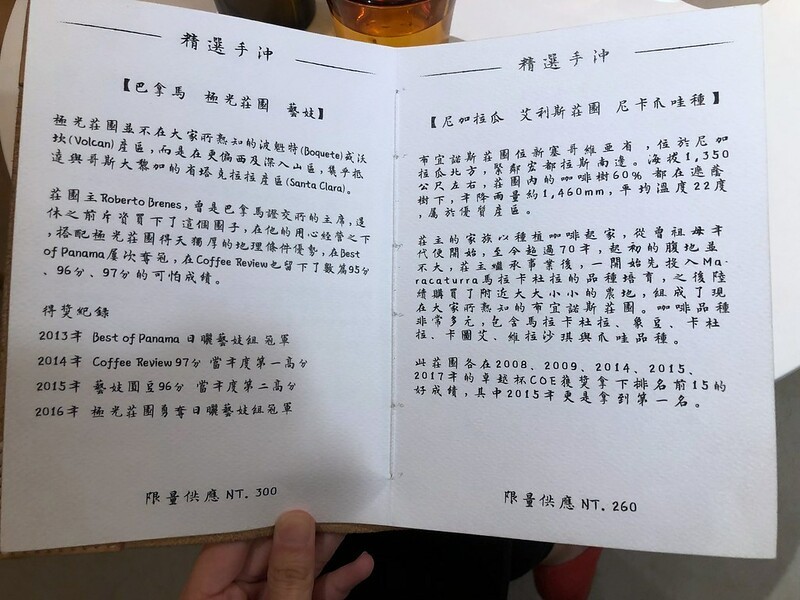 精選手沖
【巴拿馬 極光莊園 藝妓】
極光莊園並不在大家所熟知的波魁特(Boquete)或沃
坎(Volcan)產區,而是在更偏西及深入山區,幾乎抵
達與哥斯大黎加的省塔克拉拉產區(Santa Clara)。
莊園主Roberto Brenes,曾是巴拿馬證交所的主席,退
休之前斥資買下了這個園子,在他的用心經營之下
,搭配極光莊園得天獨厚的地理條件優勢,在Best
of Panama屢次奪冠,在Coffee Review也留下了數篇95分
、96分、97分的可怕成績。
得獎紀錄
2013年 Best of Panama 日曬藝妓組 冠軍
2014年 Coffee Review 97分 當年度第一高分
2015年 藝妓圓豆96分 當年度第二高分
2016年 極光莊園勇奪日曬藝妓組冠軍
限量供應 NT. 300
精選手沖
【尼加拉瓜 艾利斯莊園 尼卡爪哇種】
布宜諾斯莊園位新塞哥維亞省,位於尼加
拉瓜北方,緊鄰宏都拉斯南邊。海拔1,350
公尺左右,莊園內的咖啡樹60% 都在遮蔭
樹下,年降雨量約1,460mm,平均溫度22度
,屬於優質產區。
莊主的家族以種植咖啡起家,從曾祖母年
代便開始,至今超過70年,起初的腹地並
不大,莊主繼承事業後,一開始先投入Ma-
racaturra馬拉卡杜拉的品種培育,之後陸
續購買了附近大大小小的農地,組成了現
在大家所熟知的布宜諾斯莊園。咖啡品種
非常多元,包含馬拉卡杜拉、象豆、卡杜
拉、卡圖艾、維拉沙琪與爪哇品種。
此莊園各在2008、2009、2014、2015、
2017年的卓越杯COE獲獎拿下排名前15的
好成績,其中2015年更是拿到第一名。
限量供應 NT. 260